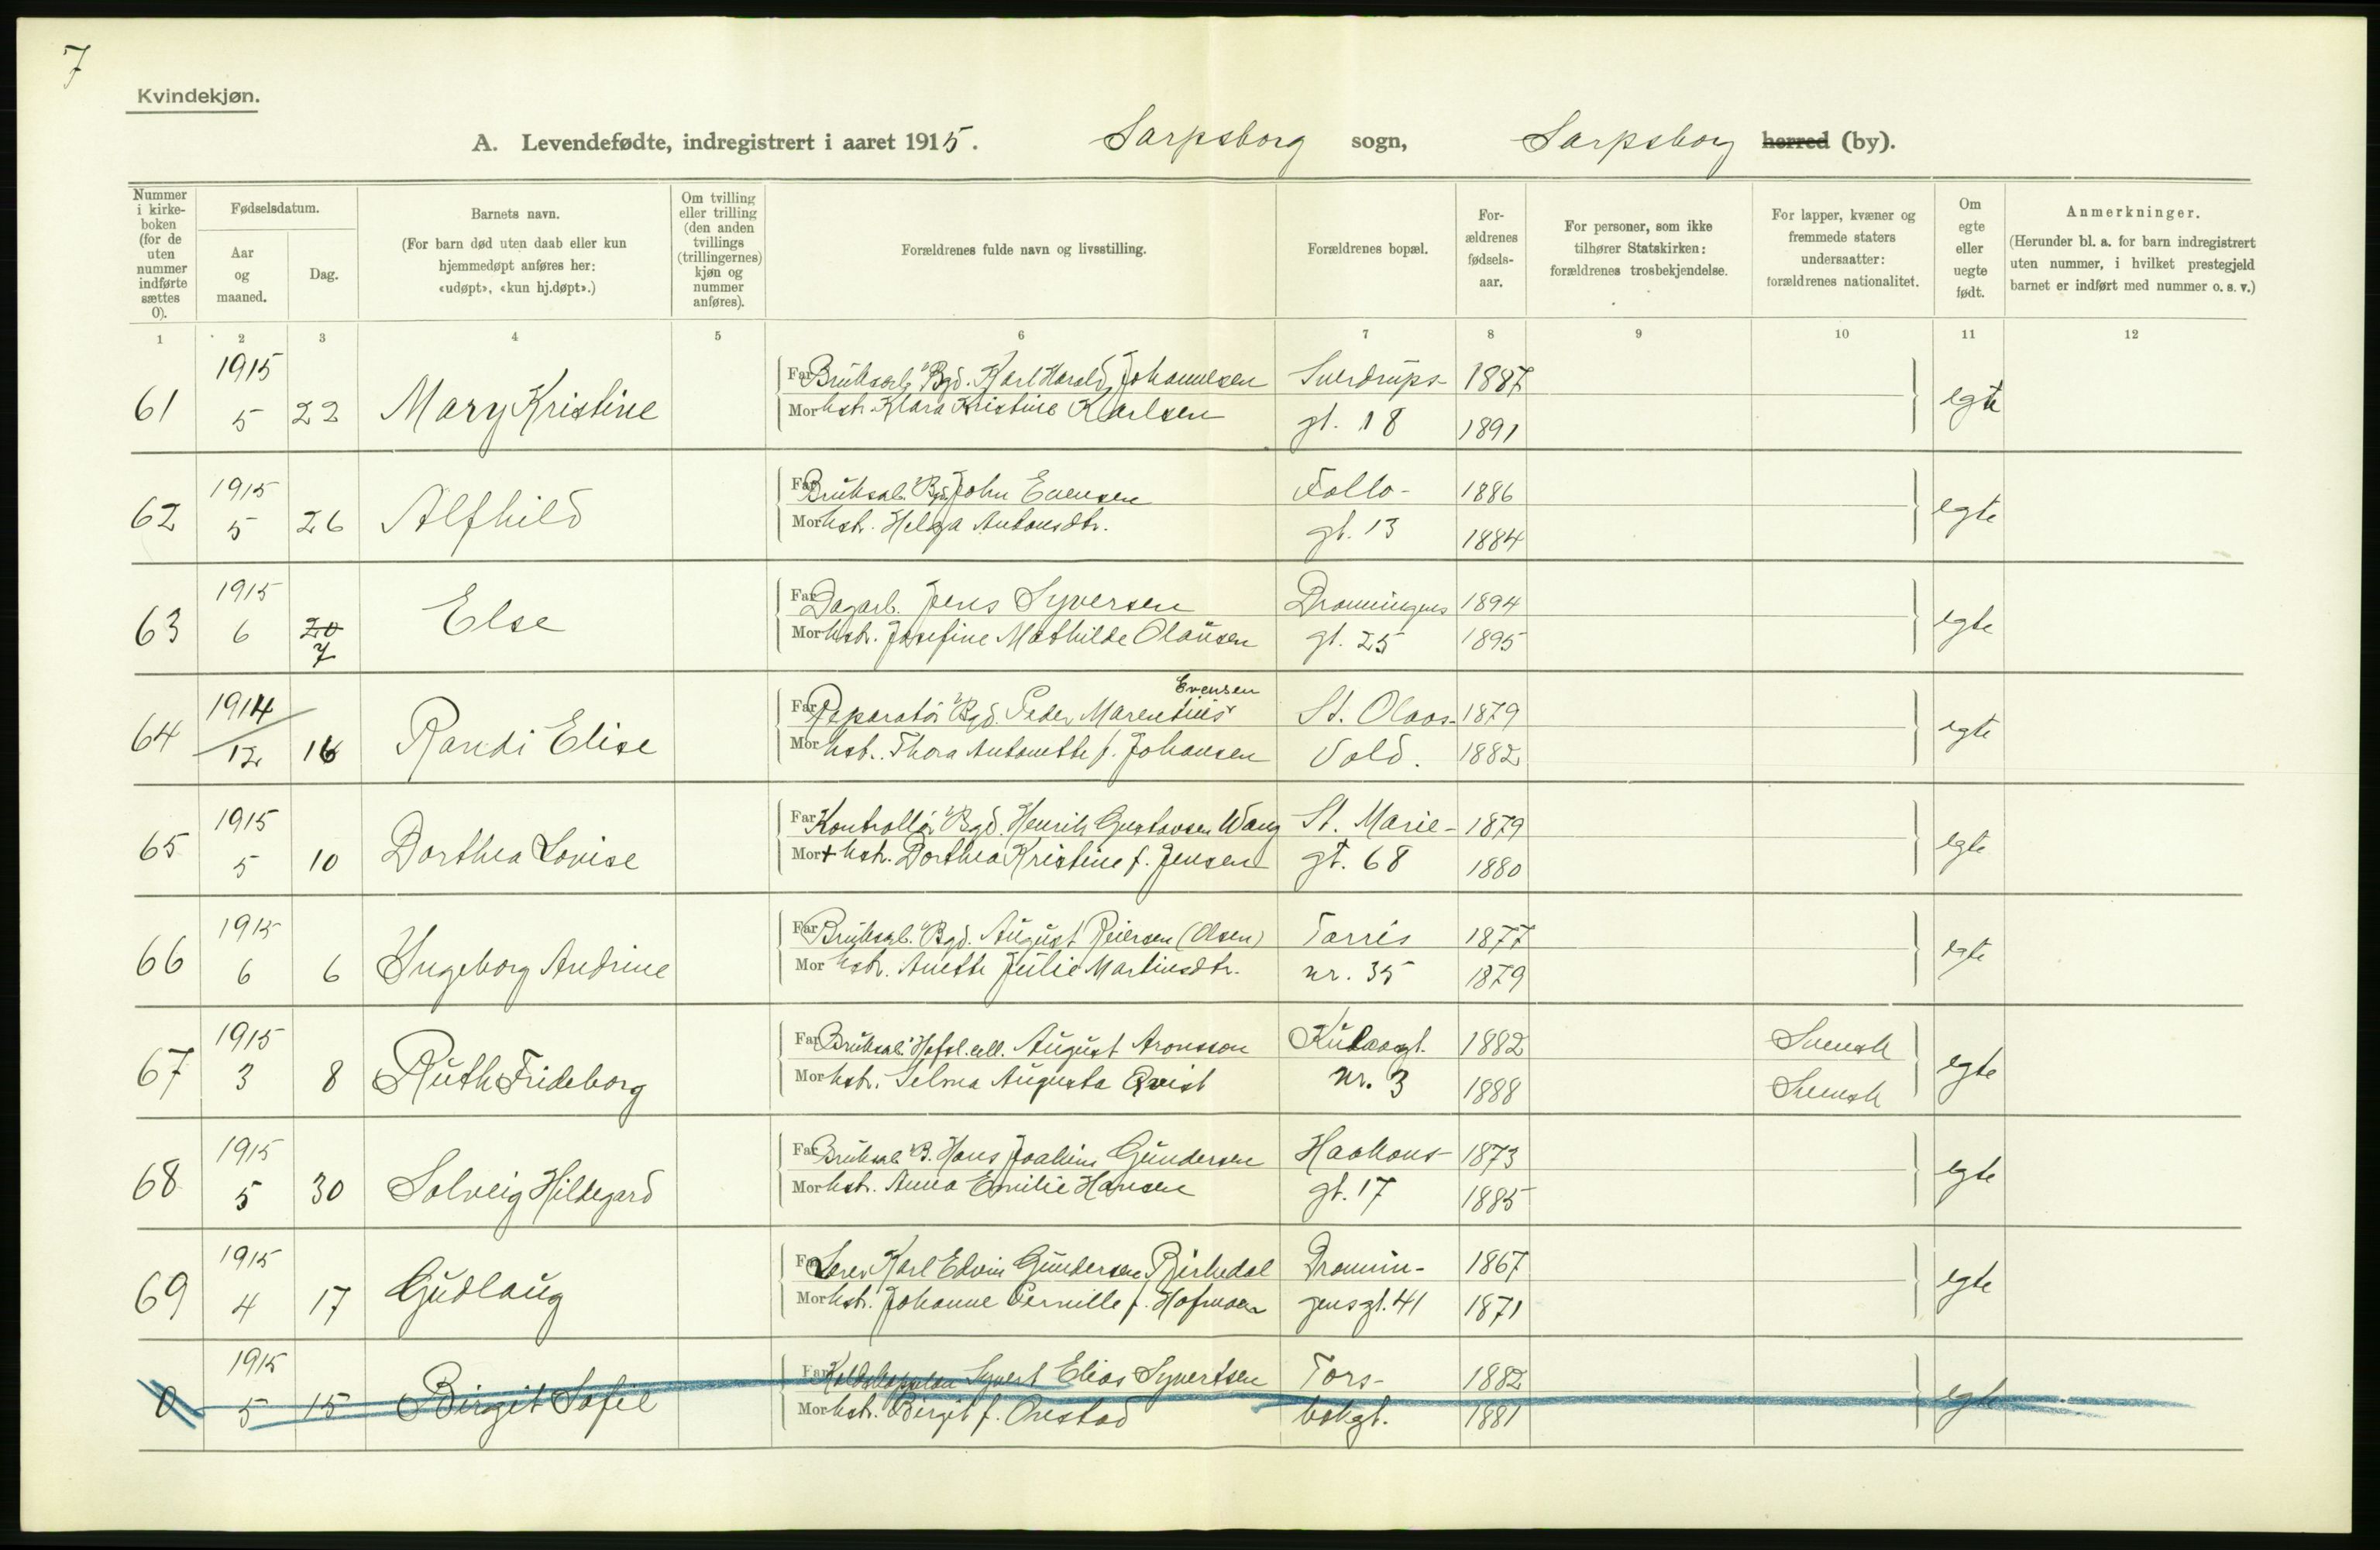 7
Kvindekjøn.
A. Levendefødte, indregistrert i aaret 1915. Sarpsborg sogn, Sarpsborg herred (by).
Nummer i kirkeboken (for de uten nummer indførte sættes 0).
Fødselsdatum.
Aar og maaned.
Dag.
Barnets navn.
(For barn død uten daab eller kun hjemmedøpt anføres her: «udøpt», «kun hj.døpt».)
Om tvilling eller trilling (den anden tvillings (trillingernes) kjøn og nummer anføres).
Forældrenes fulde navn og livsstilling.
Forældrenes bopæl.
Forældrenes fødselsaar.
For personer, som ikke tilhører Statskirken: forældrenes trosbekjendelse.
For lapper, kvæner og fremmede staters undersaatter: forældrenes nationalitet.
Om egte eller uegte født.
Anmerkninger.
(Herunder bl. a. for barn indregistrert uten nummer, i hvilket prestegjeld barnet er indført med nummer o. s. v.)
1 2 3 4 5 6 7 8 9 10 11 12
1915 Far Bruksarb. Bgd. Karl Harald Johannesen Sverdrups- 1887
61 5 22 Mary Kristine Mor hstr. Klara Kristine Karlsen gt. 18 1891 egte
1915 Far Bruksarb. Bgd. John Evensen Follo- 1886
62 5 26 Alfhild Mor hstr. Helga Antonsdtr. gt. 13 1884 egte
1915 Far Dagarb. Jens Syversen Dronningens 1894
63 6 20 7 Else Mor hstr. Josefine Mathilde Olausen gt. 25 1895 egte
Evensen
1914 Far Reparatør Bgd. Peder Marentius St. Olavs- 1879
64 12 16 Randi Elise Mor hstr. Thora Antonette f. Johansen Vold. 1882 egte
1915 Far Kontrollør Bgd. Henrik Gustavsen Wang St. Marie- 1879
65 5 10 Dorthea Lovise Mor + hstr. Dorthea Kristine f. Jensen gt. 68 1880 egte
1915 Far Bruksarb. Bgd. August Reiersen (Olsen) Tarris 1877
66 6 6 Ingeborg Andrine Mor hstr. Anette Julie Martinsdtr. nr. 35 1879 egte
1915 Far Bruksarb. Hafsl. cell. August Aronsson Kulaasgt. 1882 Svensk
67 3 8 Ruth Frideborg Mor hstr. Selma Augusta Qvist nr. 3 1888 Svensk egte
1915 Far Bruksarb. B. Hans Joakim Gundersen Haakons- 1873
68 5 30 Solveig Hildegard Mor hstr. Anna Emilie Hansen gt. 17 1885 egte
1915 Far Lærer Karl Edvin Gundersen Birkedal Dronnin- 1867
69 4 17 Gudlaug Mor hstr. Johanne Pernille f. Hofmoen gensgt. 41 1871 egte
1915 Far Syvert Elias Syvertsen Tors- 1882
0 5 15 Birgit Sofie Mor hstr. Birgit f. Onstad bekgt. 1881 egte